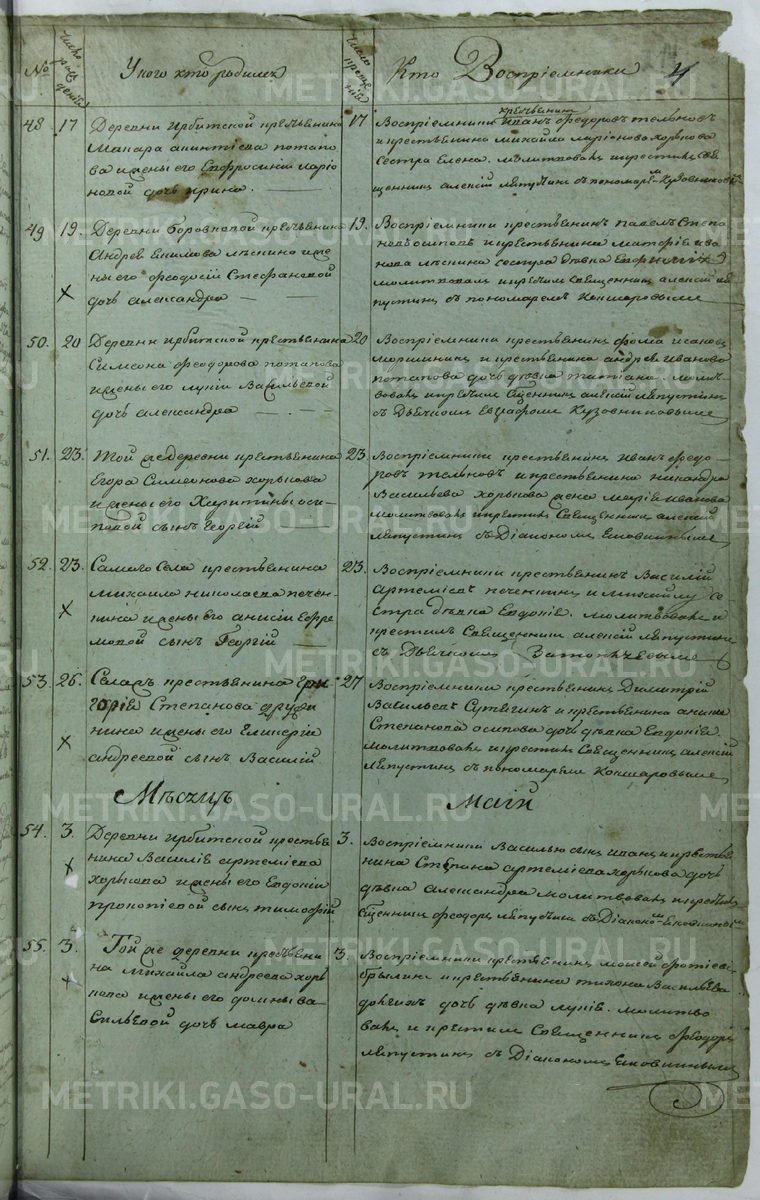 №
Число рожденiй
У кого кто родился
Число крещенiй
Кто Воспрiемники
4
48 17 Деревни Ирбитской крестьянина
Макара
ва и жены его Евфросинiи Ларiо
новой дочь Ирина.
17 Воспрiемники крестьянинъ Иванъ Феодоровъ
и крестьянина Михайла Ларiонова Хорькова
сестра Елена. молитвовалъ и крестилъ свя
щенникъ Алексiй Ляпустинъ съ пономаремъ
49 19. Деревни Боровиковой крестьянина
Андрея Екимова и же
ны его Феодосiи Стефановой
дочь Александра
19. Воспрiемники крестьянинъ Павелъ Степа
новъ Осиповъ и крестьянина Матфiя Ива
нова сестра девка
молитвовалъ и крестилъ священникъ Алексiй Ля
пустинъ съ пономаремъ Кокшаровымъ
50. 20 Деревни Ирбитской крестьянина
Симеона Феодорова Потапова
и жены его Лукiи Васильевой
дочь Александра
20 Воспрiемники крестьянинъ Фома Исаковъ
и крестьянина Андрея Иванова
Потапова дочь девка Татiана. молит
вовалъ и крестилъ священникъ Алексiй Ляпустинъ
съ дьячкомъ Евграфомъ Кузовниковымъ
51. 23. Той же деревни крестьянина
Егора Симеонова Хорькова
и жены его Харитины Оси
повой сынъ Георгiй
23. Воспрiемники крестьянинъ Иванъ Феодо
ровъ и крестьянина Никандра
Васильева Хорькова жена Марiя Иванова
молитвовалъ и крестилъ священникъ Алексiй
Ляпустинъ съ дiакономъ
52. 23. Самаго села крестьянина
Михаила Николаева Печен
кина и жены его Анисiи Ефре
мовой сынъ Георгiй
23. Воспрiемники крестьянинъ Василiй
Артемiевъ Печенкинъ и се
стра девка Евдокiя. молитвовалъ и
крестилъ священникъ Алексiй Ляпустинъ
съ дьячкомъ
53. 26. Села крестьянина Гри
горiя Степанова Дружи
нина и жены его
Андреевой сынъ Василiй
27 Воспрiемники крестьянинъ Димитрiй
Васильевъ Сутягинъ и крестьянина
Степанова Осипова дочь девка Евдокiя.
молитвовалъ и крестилъ священникъ Алексiй
Ляпустинъ съ пономаремъ Кокшаровымъ
Мѣсяцъ Маiй
54. 3. Деревни Ирбитской крестья
нина Василiя Артемiева
Хорькова и жены его Евдокiи
Прокопiевой сынъ Тимофей
3. Воспрiемники Васильевъ сынъ Иванъ и крестья
нина Степана Артемiева Хорькова дочь
девка Александра молитвовалъ и крестилъ
священникъ Феодоръ Ляпустинъ съ дiакономъ
55. 3. Той же деревни крестьяни
на Михаила Андреева Хорь
кова и жены его Домны Ва
сильевой дочь Мавра
3. Воспрiемники крестьянинъ Моисей Фотiевъ
и крестьянина Тихона Васильева
дочь девка Лукiя. молитво
валъ и крестилъ священникъ Феодоръ
Ляпустинъ съ дiакономъ
METRIKI.GASO-URAL.RU